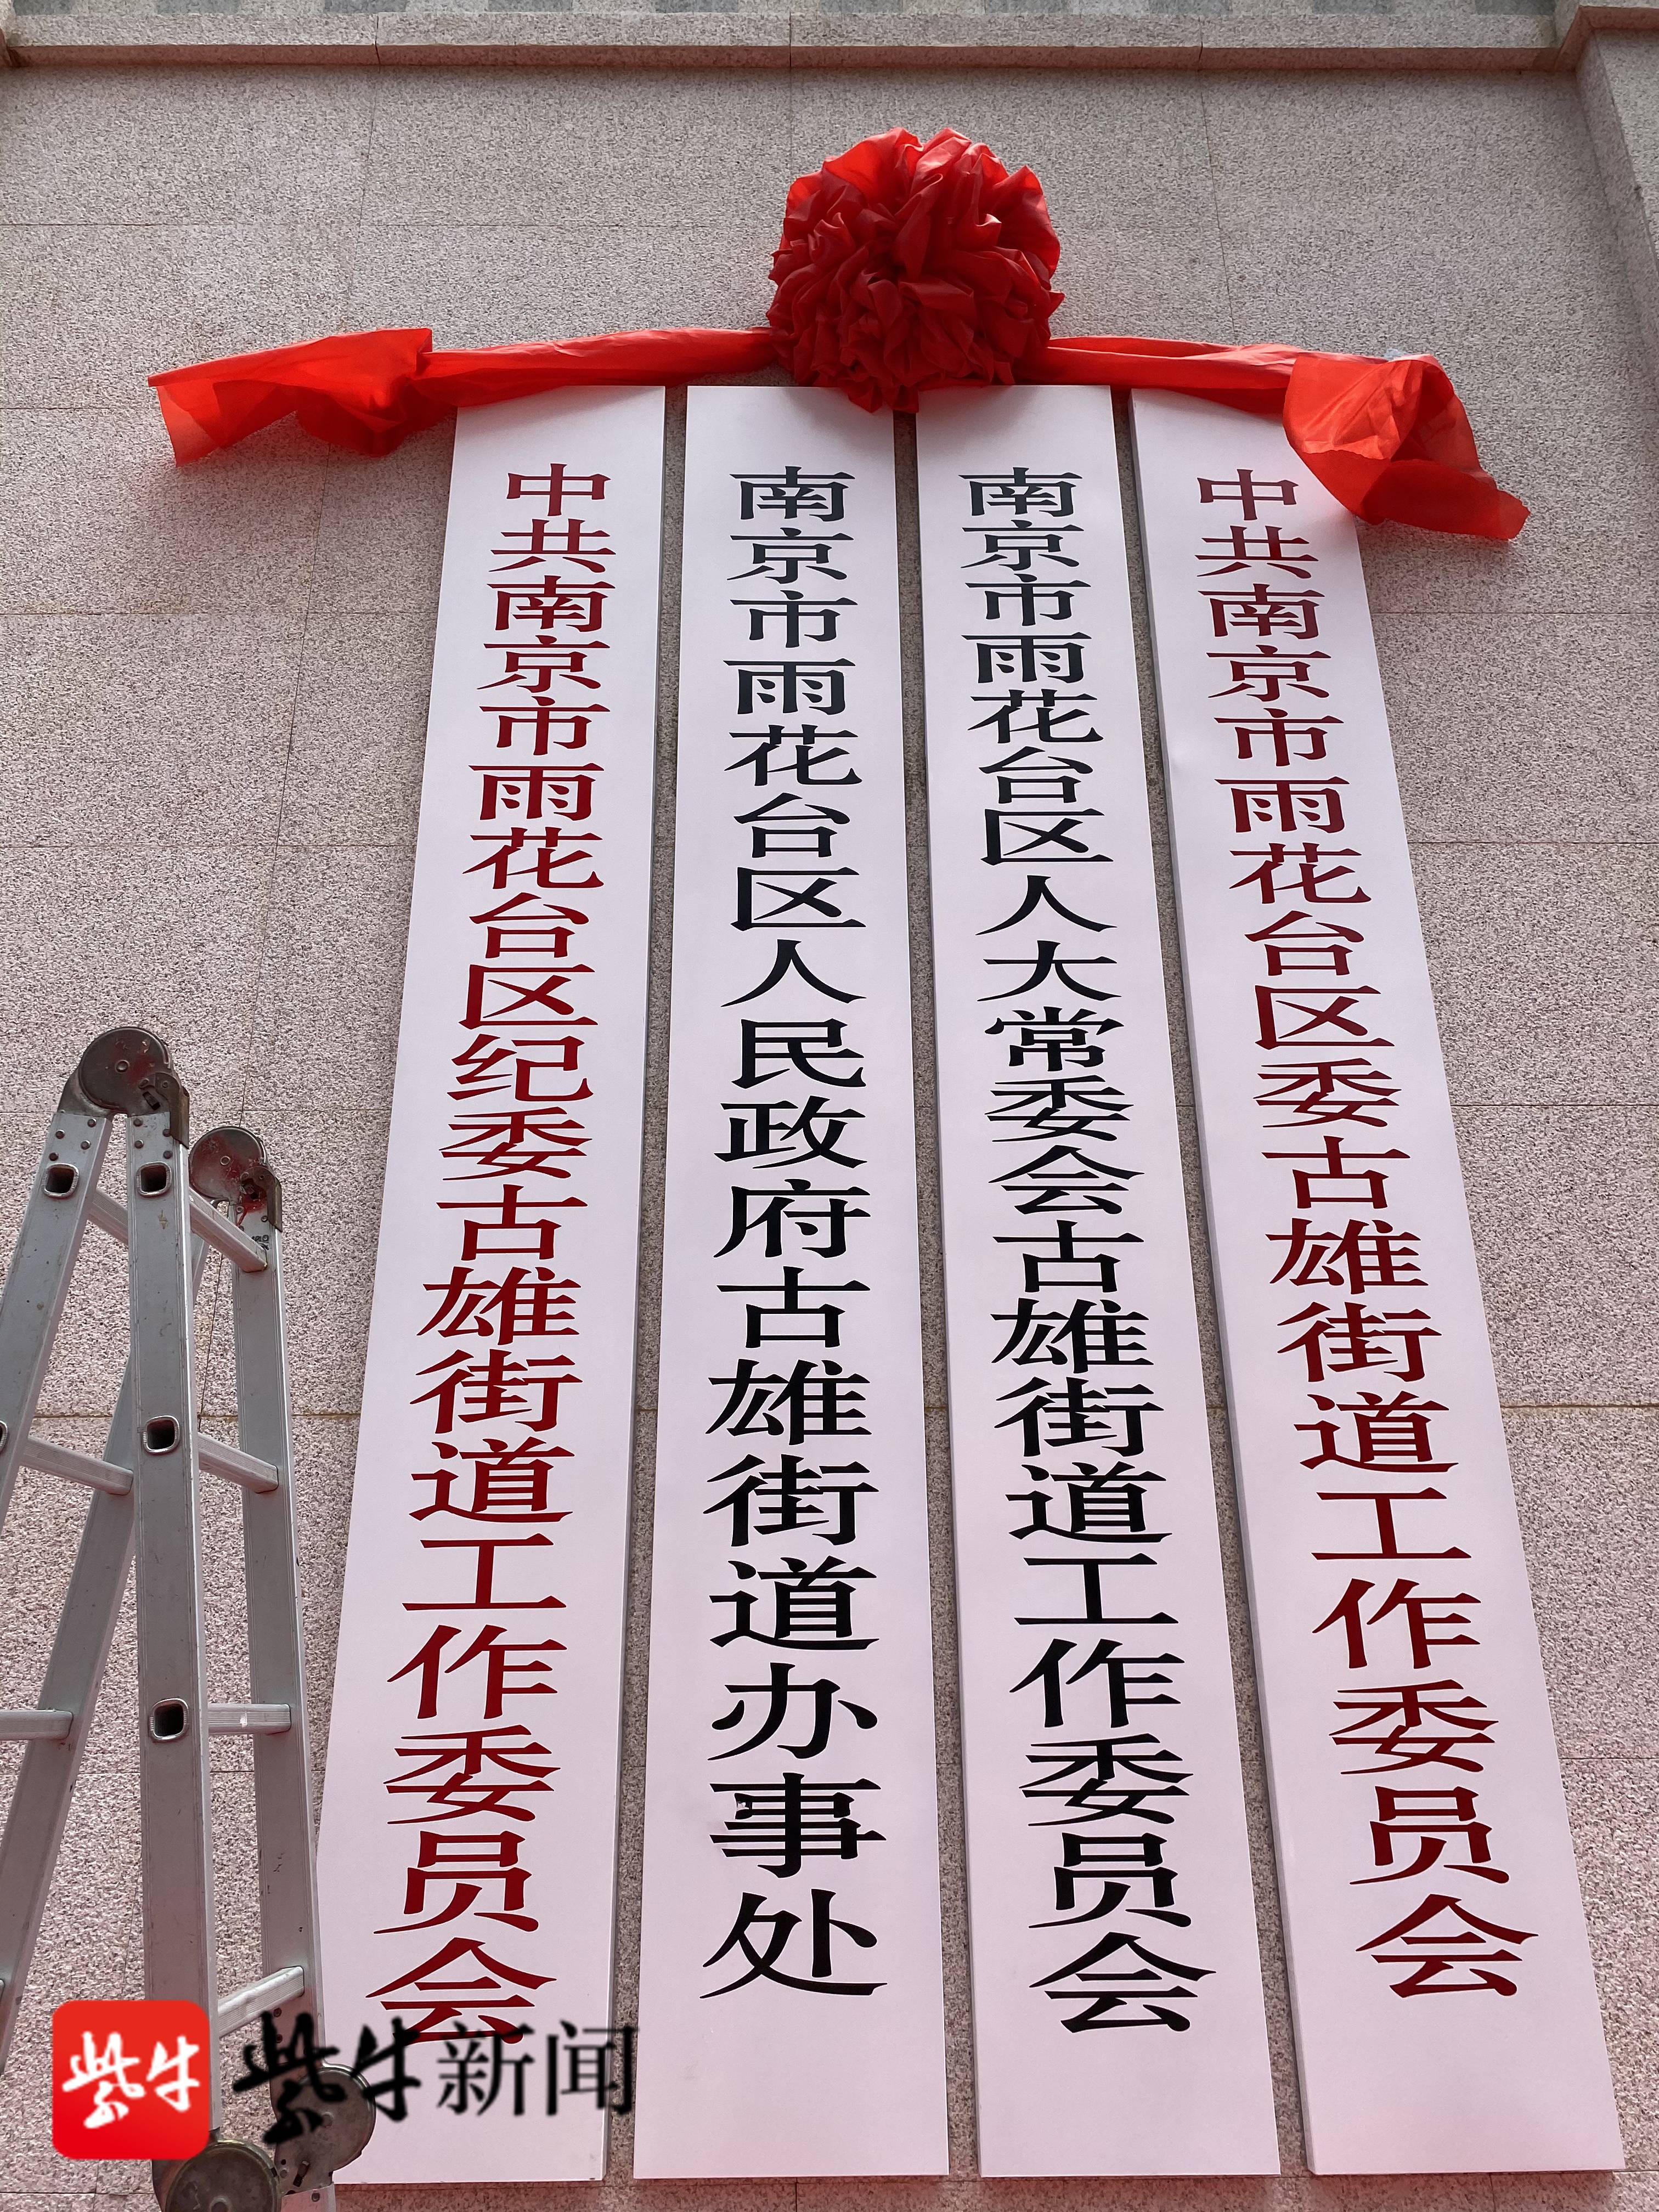 中共南京市雨花台区纪委古雄街道工作委员会
南京市雨花台区人民政府古雄街道办事处
南京市雨花台区人大常委会古雄街道工作委员会
中共南京市雨花台区委古雄街道工作委员会
紫牛
紫牛新闻